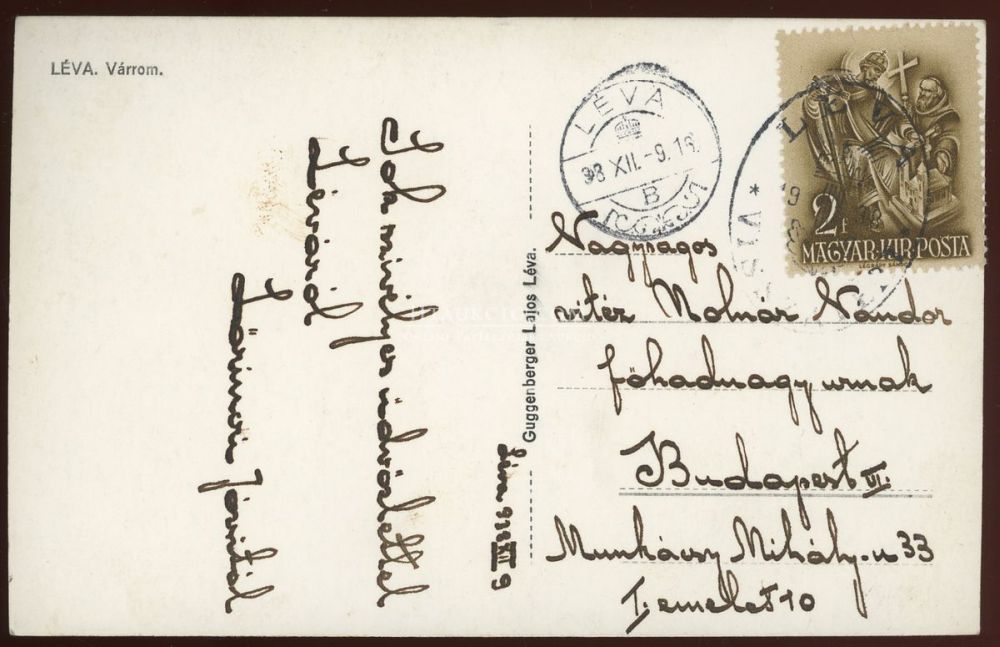 LÉVA. Várrom.
Sok szívélyes üdvözlettel
Léváról
Lőrinczi
Léva 938 XII 9
Guggenberger Lajos Léva.
LÉVA
938 XII.-9. 16
B
LÉVA
2f
MAGYAR·KIR·POSTA
Nagyságos
vitéz Molnár Nándor
főhadnagy urnak
Budapest VI.
Munkácsy Mihály-u 33
I. emelet 10